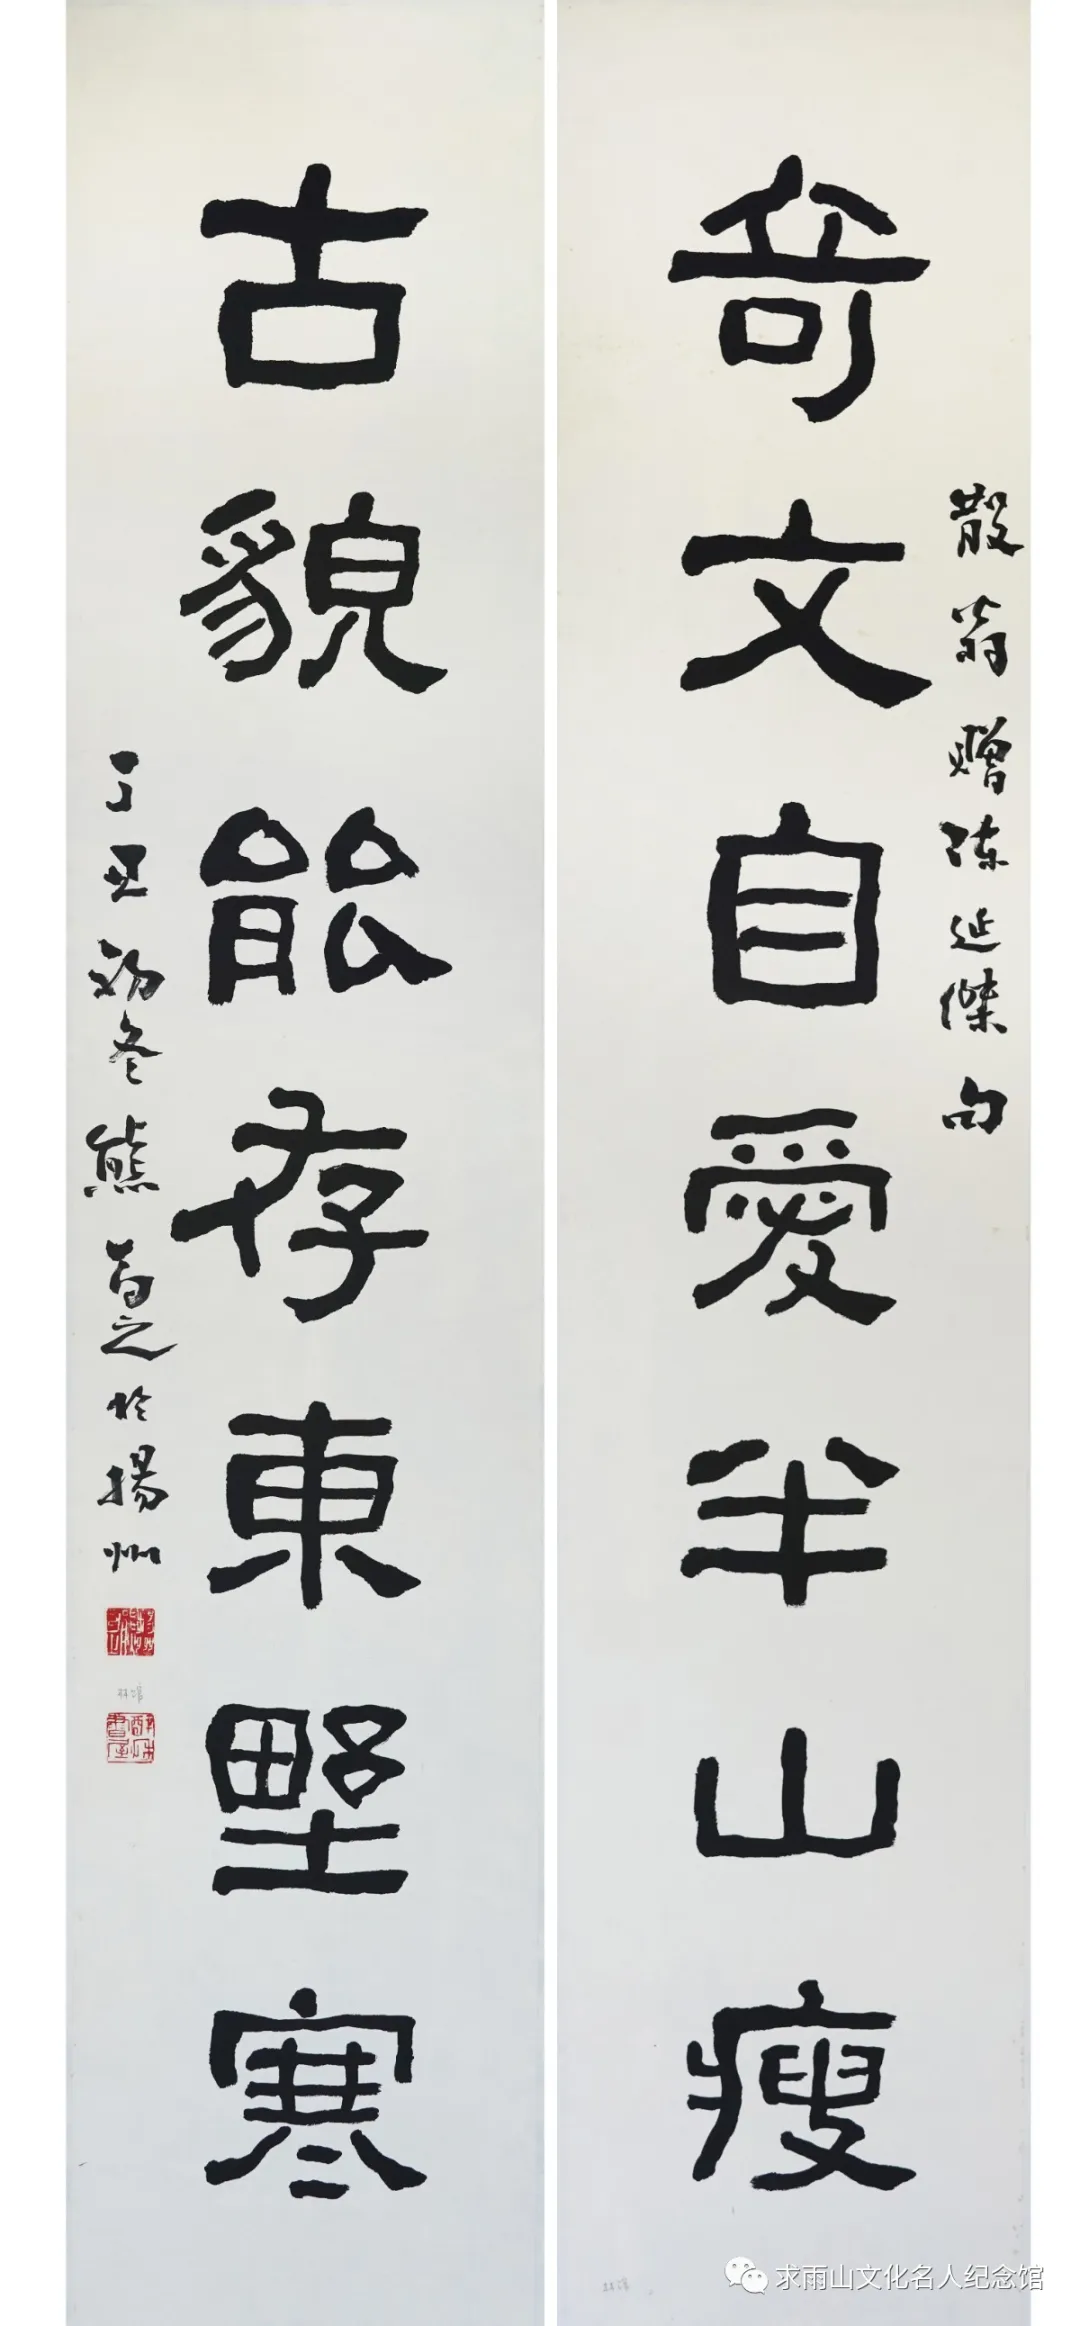 奇文自愛半山瘦
散翁贈陈延傑句
古貌能存東野寒
丁丑初冬熊百之於揚州
求雨山文化名人纪念馆